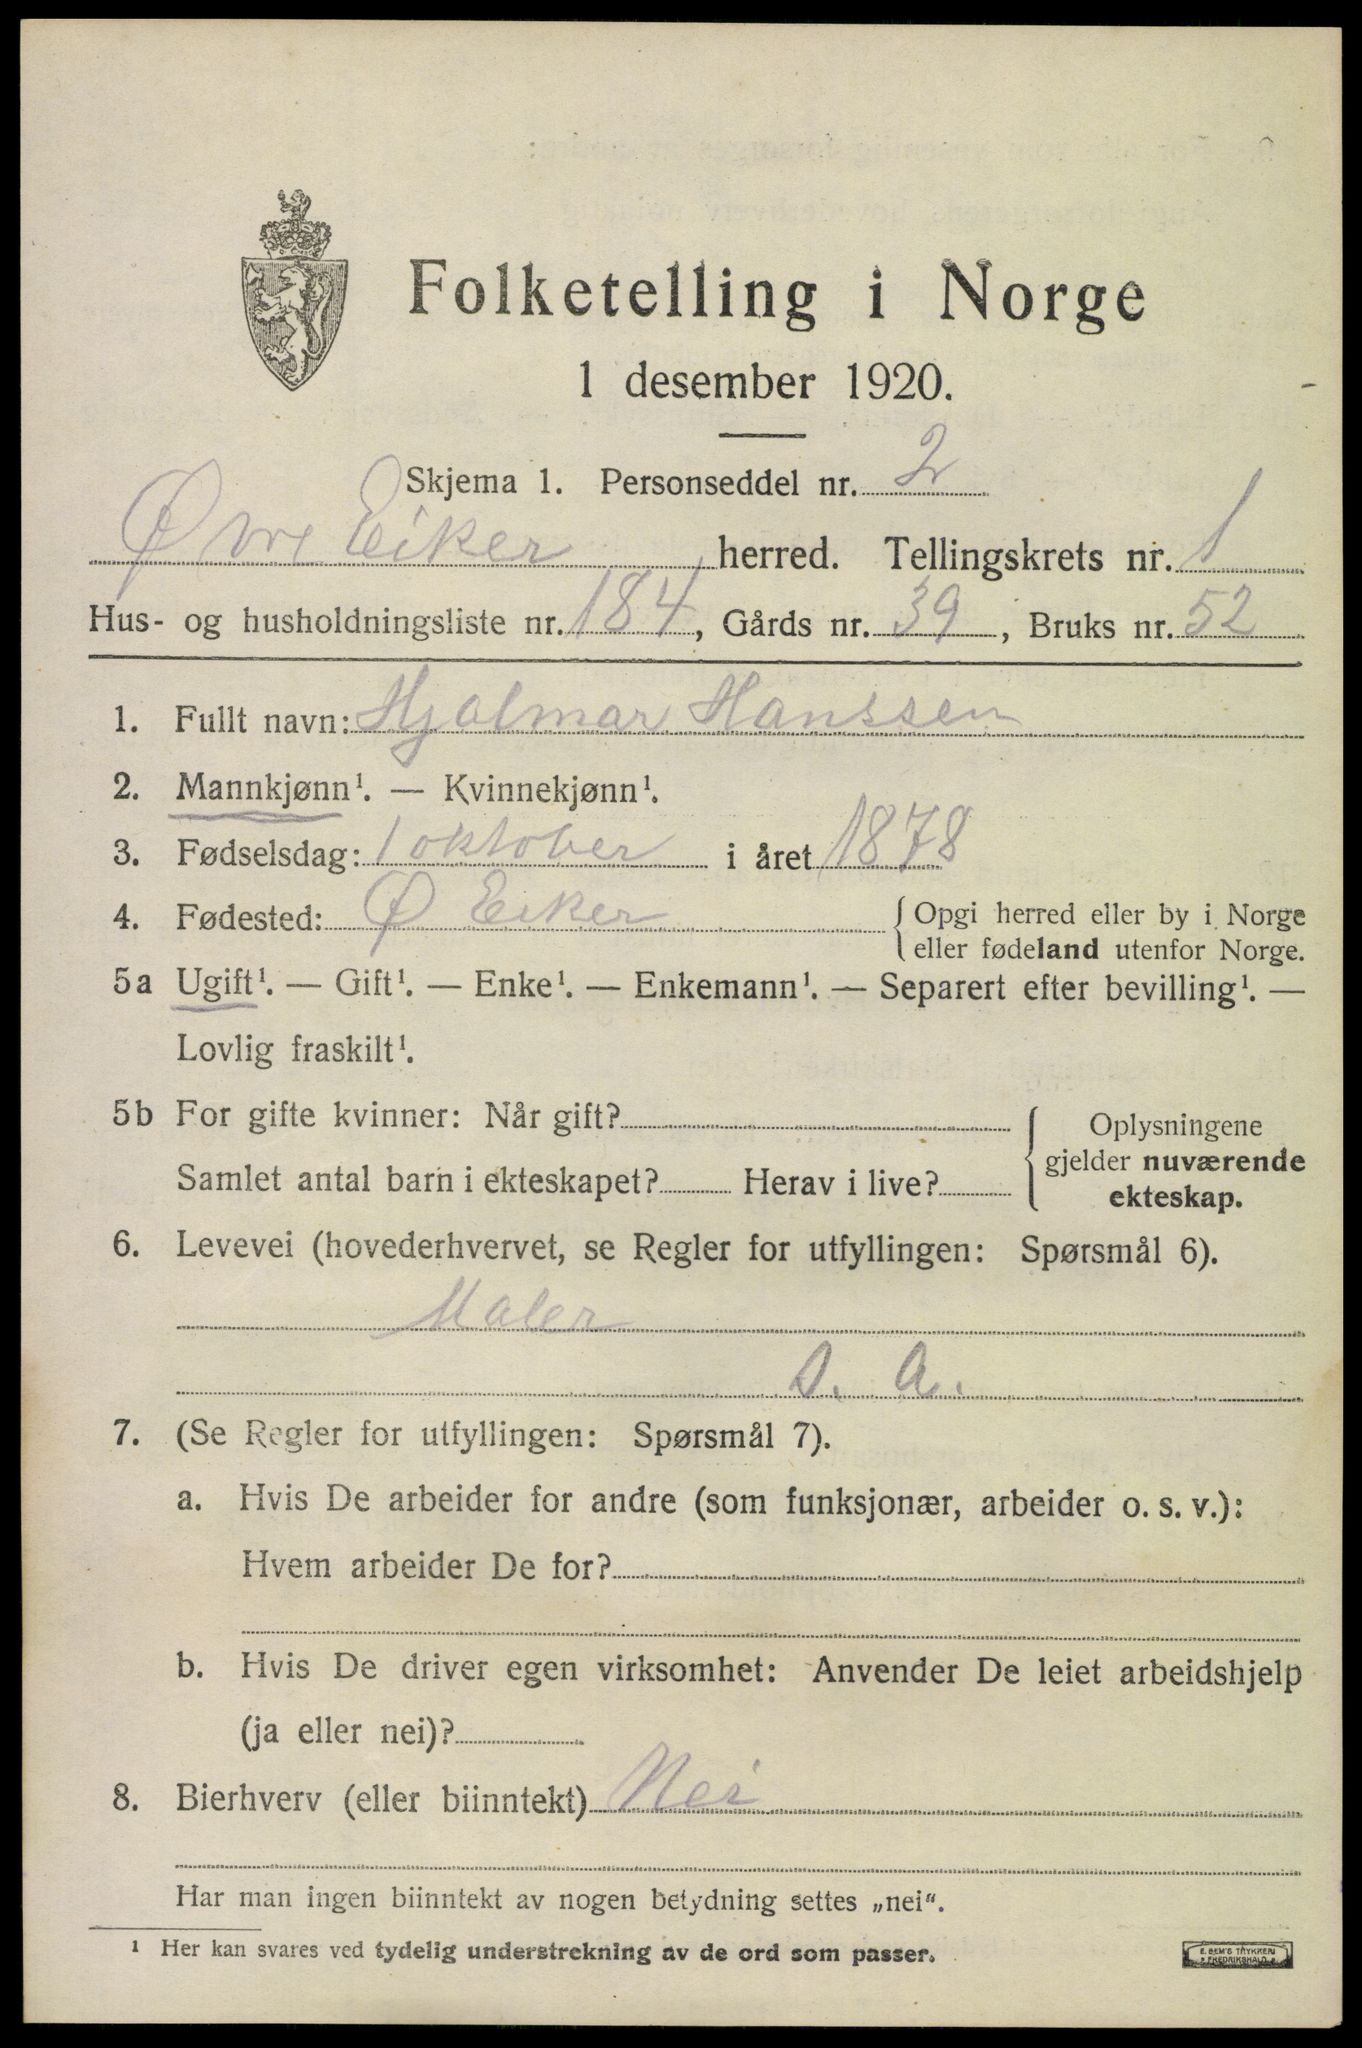 Folketelling i Norge
1 desember 1920.
Skjema 1. Personseddel nr. 2
Øvre Eiker herred. Tellingskrets nr. 1
Hus- og husholdningsliste nr. 184, Gårds nr. 39, Bruks nr. 52
1. Fullt navn: Hjalmar Hanssen
2. Mannkjønn¹. — Kvinnekjønn¹.
3. Fødselsdag: 1 oktober i året 1878
4. Fødested: Ø Eiker { Opgi herred eller by i Norge
eller fødeland utenfor Norge.
5a Ugift¹. — Gift¹. — Enke¹. — Enkemann¹. — Separert efter bevilling¹. —
Lovlig fraskilt¹.
5b For gifte kvinner: Når gift?
Samlet antal barn i ekteskapet? Herav i live?
{ Oplysningene
gjelder nuværende
ekteskap.
6. Levevei (hovederhvervet, se Regler for utfyllingen: Spørsmål 6).
Maler
S. A.
7. (Se Regler for utfyllingen: Spørsmål 7).
a. Hvis De arbeider for andre (som funksjonær, arbeider o. s. v.):
Hvem arbeider De for?
b. Hvis De driver egen virksomhet: Anvender De leiet arbeidshjelp
(ja eller nei)?
8. Bierhverv (eller biinntekt) Nei
Har man ingen biinntekt av nogen betydning settes „nei“.
¹ Her kan svares ved tydelig understrekning av de ord som passer.
E. SEM'S TRYKKERI
FREDRIKSHALD